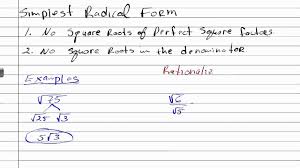 Simplest Radical Form
1. No Square Roots of Perfect Square factors
2. No Square Roots in the denominator
Examples
Rationalize
√75
√25 √3
5√3
√6
√5